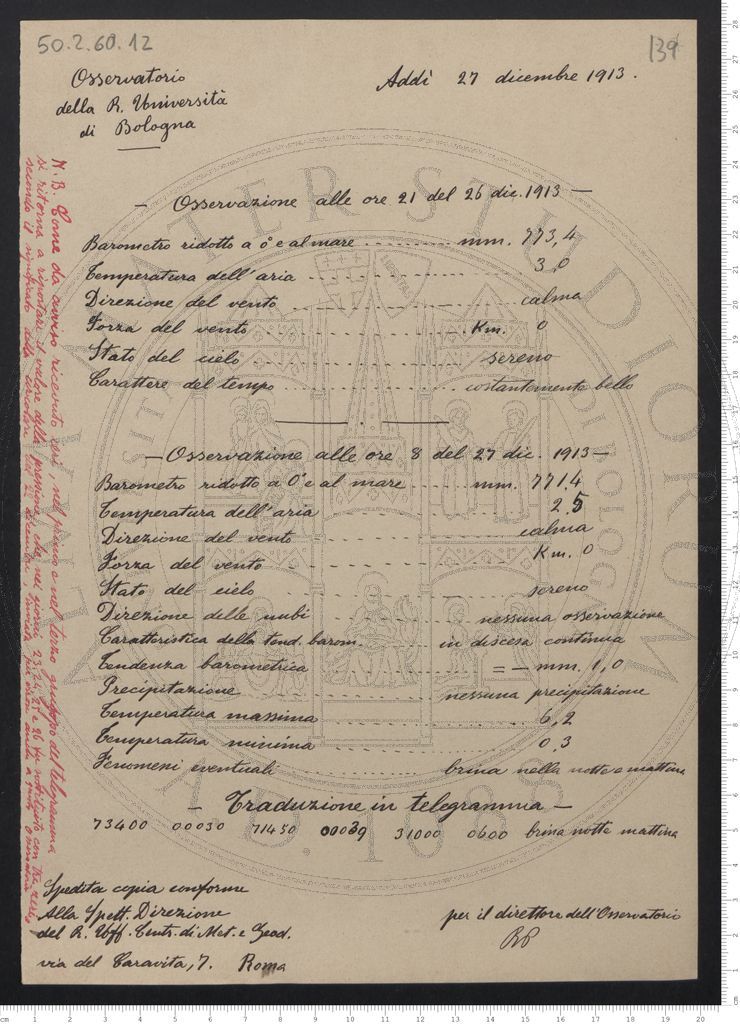 50.2.60.12
139
Osservatorio
della R. Università
di Bologna
Addì 27 dicembre 1913.
— Osservazione alle ore 21 del 26 dic. 1913 —
Barometro ridotto a 0° e al mare .......... mm. 773,4
Temperatura dell'aria .......... 3,0
Direzione del vento .......... calma
Forza del vento .......... Km. 0
Stato del cielo .......... sereno
Carattere del tempo .......... costantemente bello
— Osservazione alle ore 8 del 27 dic. 1913 —
Barometro ridotto a 0° e al mare .......... mm. 771,4
Temperatura dell'aria .......... 2,5
Direzione del vento .......... calma
Forza del vento .......... Km. 0
Stato del cielo .......... sereno
Direzione delle nubi .......... nessuna osservazione
Caratteristica della tend. barom. .......... in discesa continua
Tendenza barometrica .......... = — mm. 1,0
Precipitazione .......... nessuna precipitazione
Temperatura massima .......... 6,2
Temperatura minima .......... 0,3
Fenomeni eventuali .......... brina nella notte e mattina
— Traduzione in telegramma —
73400 00030 71450 00039 31000 0600 brina notte mattina
Spedita copia conforme
Alla Spett. Direzione
del R. Uff. Centr. di Met. e Geod.
via del Caravita, 7. Roma
per il direttore dell'Osservatorio
N. B. Come da avviso ricevuto ieri, nel primo e nel terzo gruppo del telegramma
si ritorna a riportare il valore della pressione, che nei giorni 23, 24, 25 e 26 fu
secondo il significato della circolare del 22 dicembre,
ALMA MATER STUDIORUM
A.D. 1088